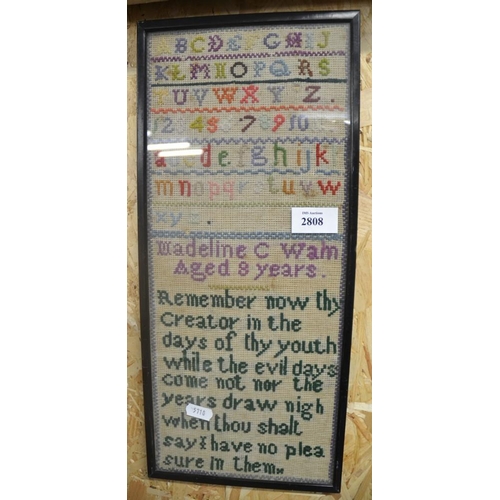 BCDEFGHIJ
KLMNOPQRS
TUVWXYZ.
12 45 7 9 10
abcdefghijk
mnopqrstuvw
xyz.
2808
Madeline C Wam
Aged 8 years.
Remember now thy
Creator in the
days of thy youth
while the evil days
come not nor the
years draw nigh
when thou shalt
say I have no plea
sure in them